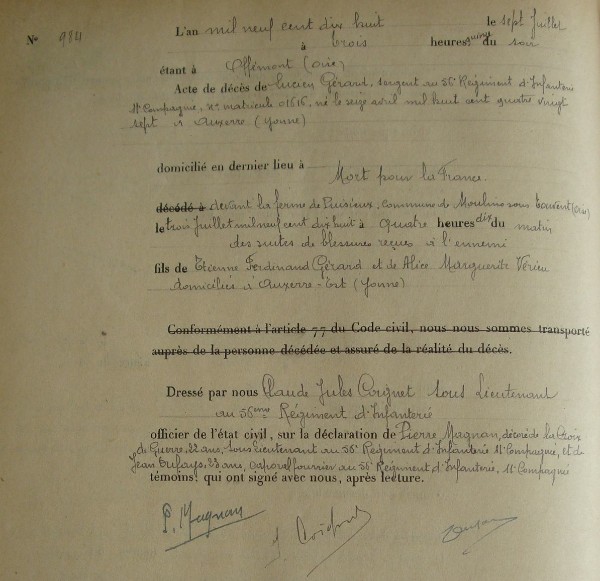 N° 984
L'an mil neuf cent dix huit le sept Juillet
à trois heures quinze du soir
étant à Offémont (Oise)
Acte de décès de Lucien Gérard, sergent au 56e Régiment d'Infanterie
11e Compagnie, No matricule 01616, né le seize avril mil huit cent quatre vingt
sept à Auxerre (Yonne)
domicilié en dernier lieu à
Mort pour la France.
décédé à devant la ferme de Puisieux, commune de Moulins sous Touvent (Oise)
le trois Juillet mil neuf cent dix huit à quatre heures dix du matin
des suites de blessures reçues à l'ennemi
fils de Etienne Ferdinand Gérard et de Alice Marguerite
domiciliés à Auxerre-Est (Yonne)
Conformément à l'article 77 du Code civil, nous nous sommes transporté
auprès de la personne décédée et assuré de la réalité du décès.
Dressé par nous Claude Jules Coignet Sous Lieutenant
au 56ème Régiment d'Infanterie
officier de l'état civil, sur la déclaration de Pierre Magnan, décoré de la Croix
de Guerre, 22 ans, sous lieutenant au 56e Régiment d'Infanterie 11e Compagnie, et de
Jean ans, Caporal fourrier au 56e Régiment d'Infanterie, 11e Compagnie
témoins, qui ont signé avec nous, après lecture.
P. Magnan
J. Coignet